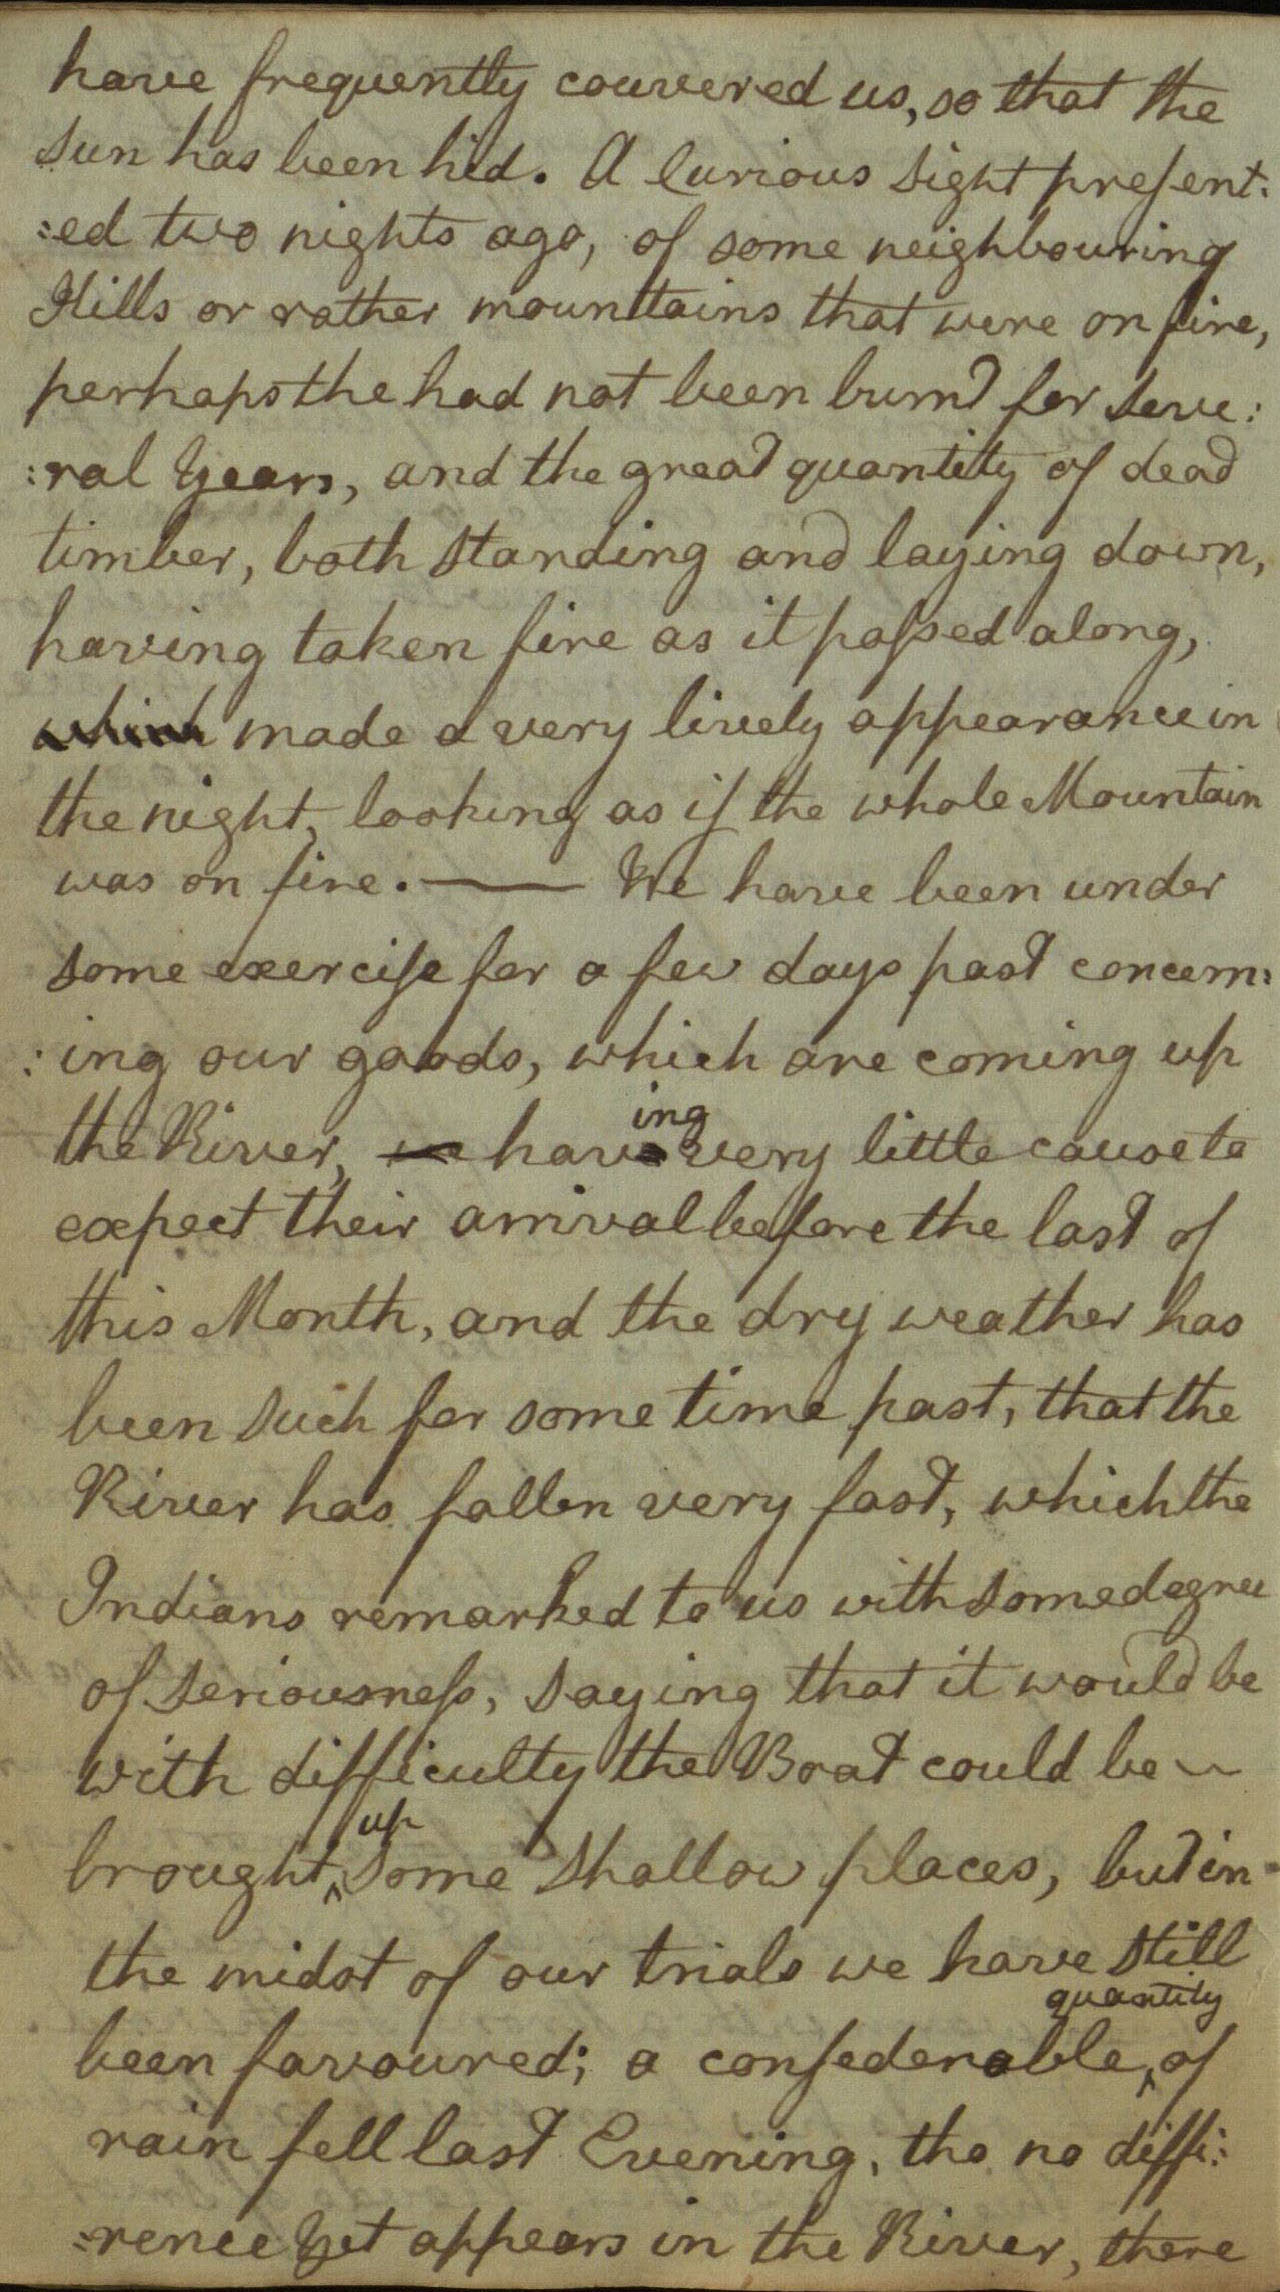 have frequently couvered us, so that the
Sun has been hid. A Curious Sight present:
:ed two nights ago, of some neighbouring
Hills or rather mounttains that were on fire,
perhaps the had not been burnd for Seve:
:ral Years, and the great quantity of dead
timber, both Standing and laying down,
having taken fire as it passed along,
which made a very lively appearance in
the night, looking as if the whole Mountain
was on fire. — We have been under
some exercise for a few days past concern:
:ing our goods, which are coming up
ing
the River, we have very little cause to
expect their arrival before the last of
this Month, and the dry weather has
been Such for some time past, that the
River has fallen very fast, which the
Indians remarked to us with some degree
of Seriousness, Saying that it would be
with difficulty the Boat could be
up
brought ^ some Shallow places, but in
the midst of our trials we have Still
quantity
been favoured; a consederable ^ of
rain fell last Evening, tho no diffi:
:rence Yet appears in the River, there